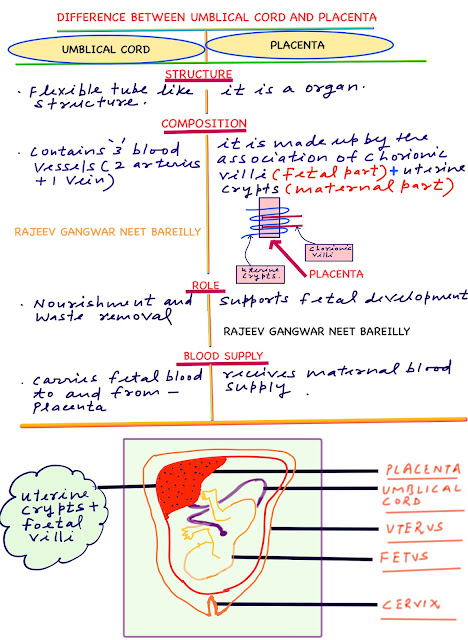 DIFFERENCE BETWEEN UMBLICAL CORD AND PLACENTA
UMBLICAL CORD
PLACENTA
STRUCTURE
· Flexible tube like
structure.
it is a organ.
COMPOSITION
· Contains '3' blood
vessels (2 arteries
+ 1 vein)
it is made up by the
association of chorionic
villi (fetal part) + uterine
crypts (maternal part)
RAJEEV GANGWAR NEET BAREILLY
uterine
crypts.
chorionic
villi
PLACENTA
ROLE
· Nourishment and
waste removal
supports fetal development
RAJEEV GANGWAR NEET BAREILLY
BLOOD SUPPLY
· carries fetal blood
to and from -
placenta
receives maternal blood
supply.
uterine
crypts +
foetal
villi
PLACENTA
UMBLICAL
CORD
UTERUS
FETUS
CERVIX